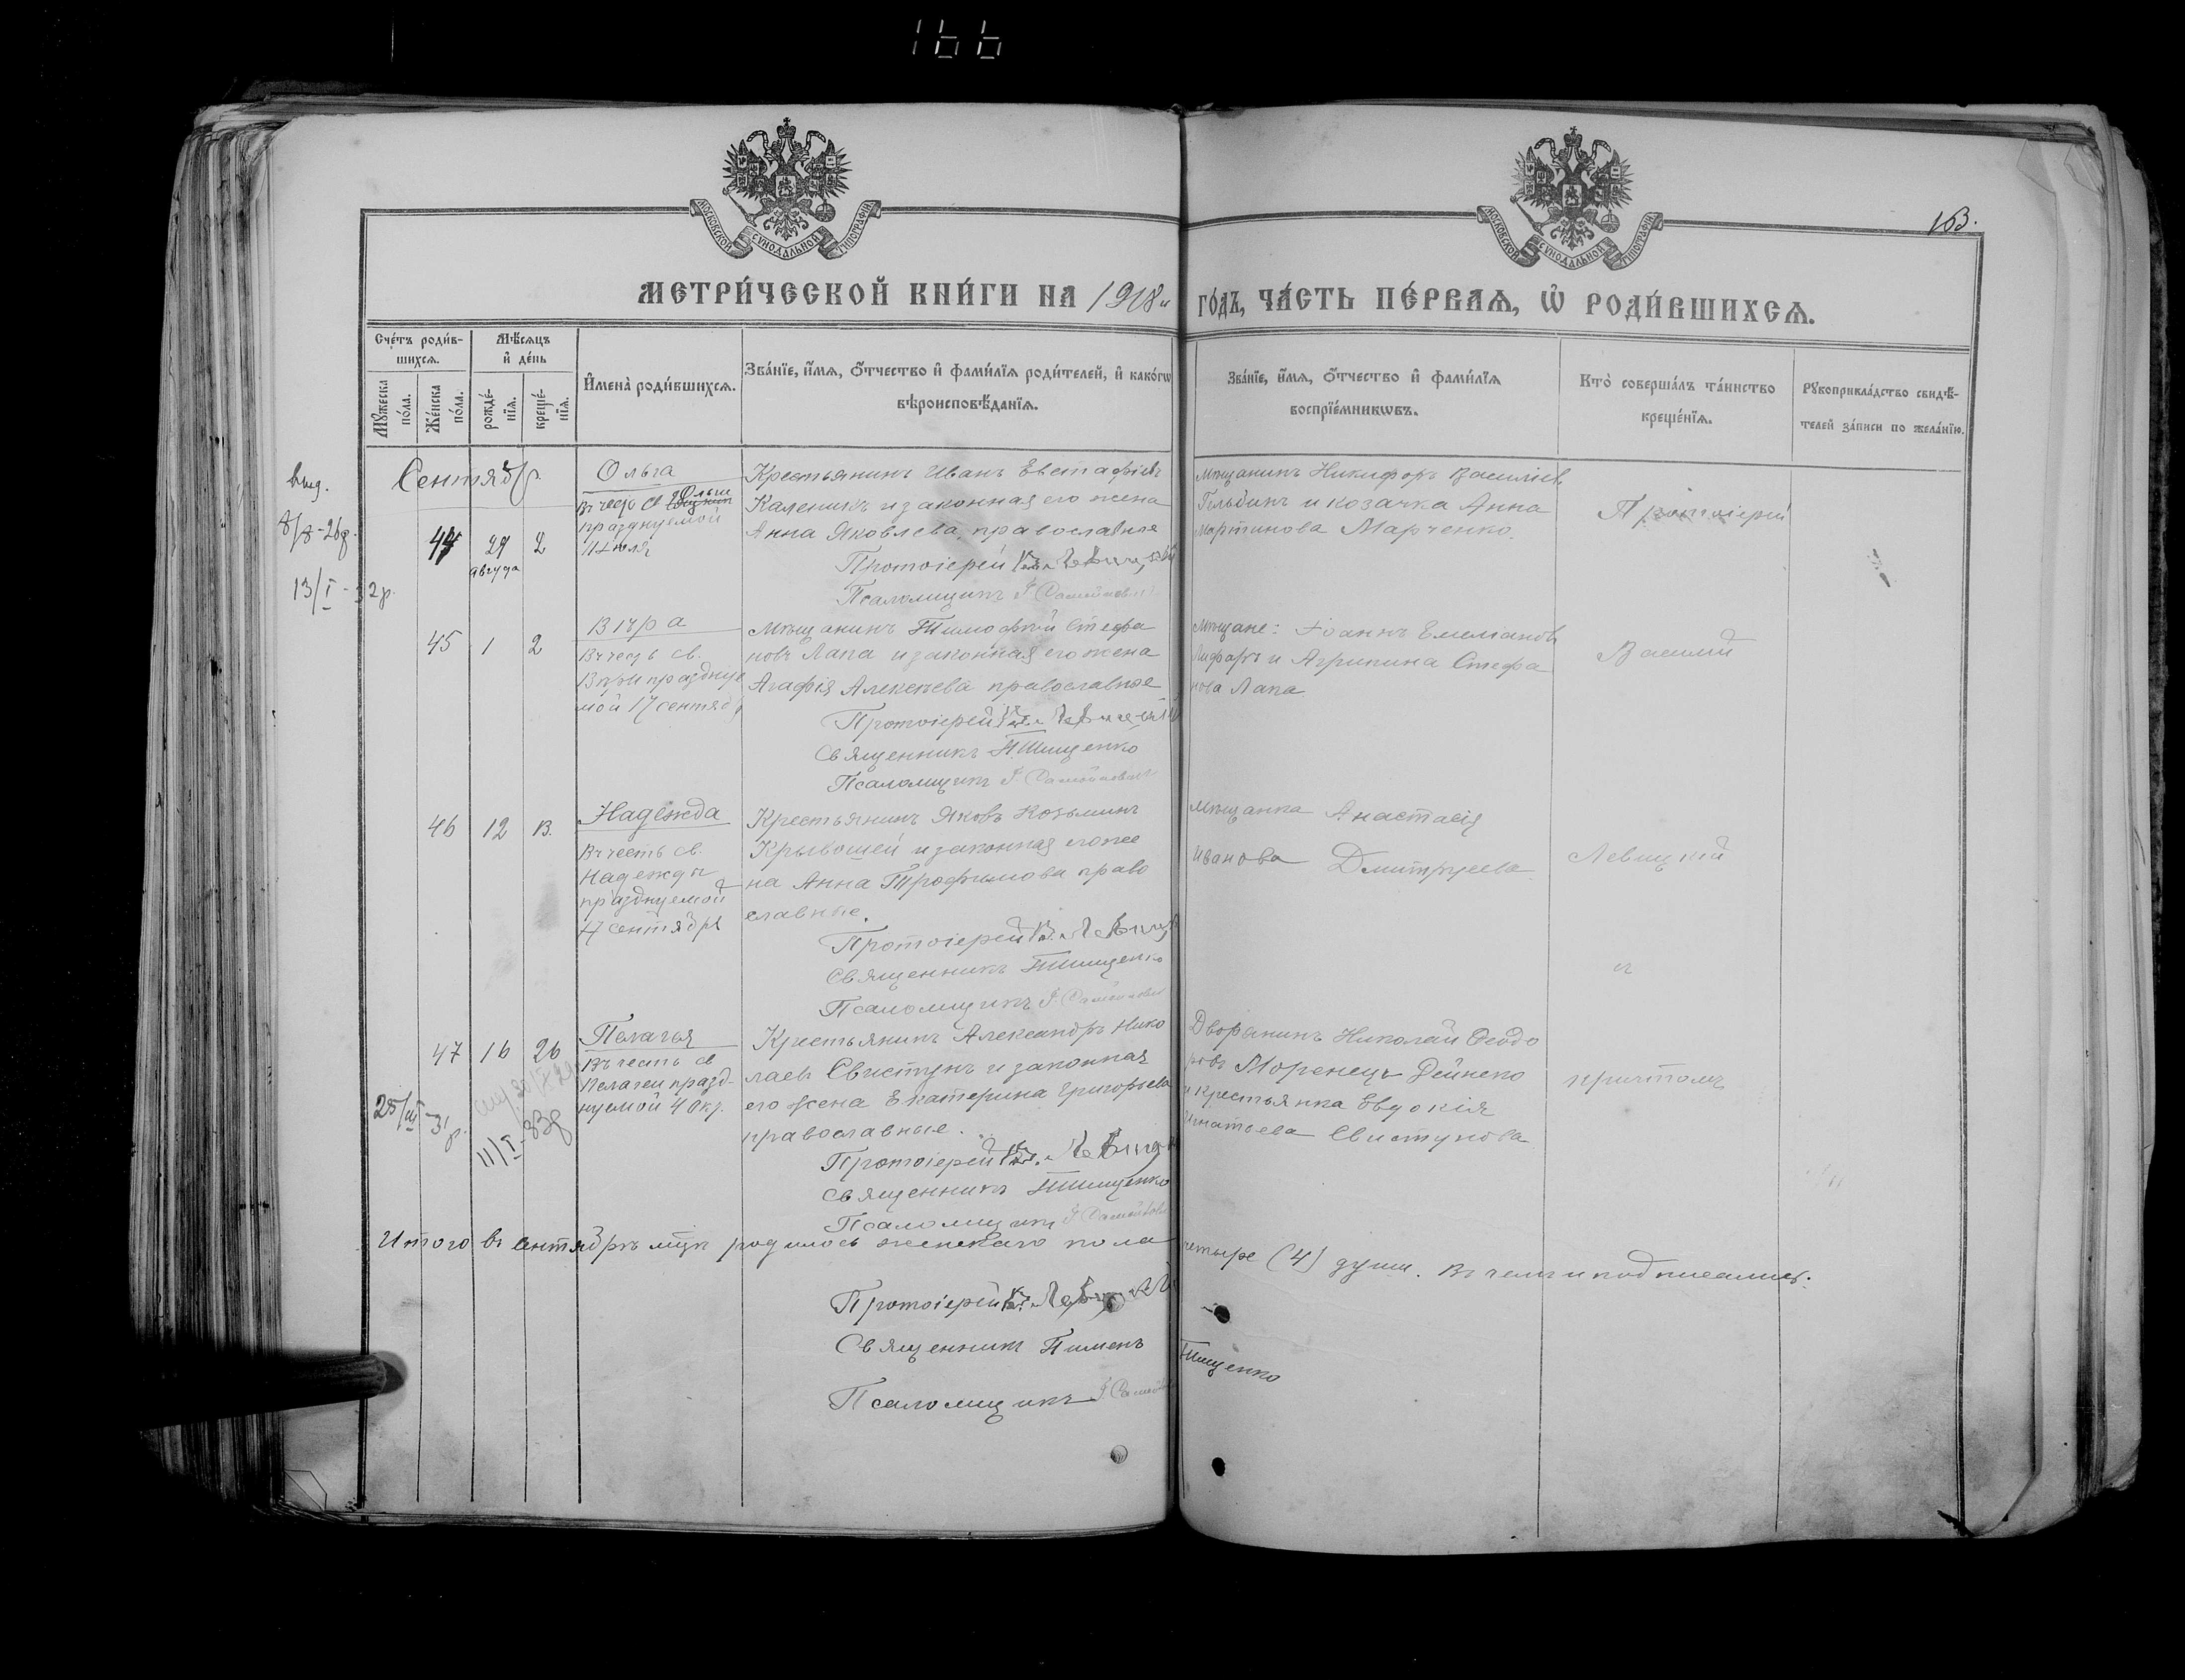 166
163.
МОСКОВСКОЙ СѴНОДАЛЬНОЙ ТИПОГРАФІИ
МОСКОВСКОЙ СѴНОДАЛЬНОЙ ТИПОГРАФІИ
МЕТРИ́ЧЕСКОЙ КНИ́ГИ НА 1918 ГО́ДЪ, ЧА́СТЬ ПЕ́РВАѦ, Ѡ҆ РОДИ́ВШИХСѦ.
Сче́тъ роди́в-
шихсѧ.
Мѣ́сѧцъ
и҆ де́нь
Мꙋ́жеска
по́ла.
Же́нска
по́ла.
рожде́-
нїѧ.
креще́-
нїѧ.
И҆мена̀ роди́вшихсѧ.
Зва́нїе, и҆́мѧ, ѻ҆́тчество и҆ фамı́лїѧ роди́телей, и҆ како́гѡ
вѣроисповѣ́данїѧ.
Зва́нїе, и҆́мѧ, ѻ҆́тчество и҆ фамı́лїѧ
воспрїе́мникѡвъ.
Кто̀ соверша́лъ та́инство
креще́нїѧ.
Рꙋкоприкла́дство свидѣ́-
телей за́писи по жела́нїю.
Сентябр.
выд.
8/8-26р.
13/I-32р.
44 29 августа 2
Ольга
Въ честь св Ольги
празднуемой
11 Июля
Крестьянинъ Иванъ Евстафіевъ
Каленикъ и законная его жена
Анна Яковлева, православные
Протоіерей Вас. Левицкій
Псаломщикъ
Мѣщанинъ Никифоръ Василіев
и козачка Анна
Мартинова Марченко.
Протоіерей
45 1 2
Вѣра
Въ честь св.
Вѣры празднуе
мой 17 сентяб
Мѣщанинъ Тимофей Стефа
новъ Лапа и законная его жена
Агафія Алексѣева православные
Протоіерей Вас. Левицкій
Священникъ П Тищенко
Псаломщикъ
Мѣщане: Іоаннъ Емеліановъ
Лифаръ и Агрипина Стефа
нова Лапа
Василій
46 12 13.
Надежда
Въ честь св.
Надежды
празднуемой
17 сентября
Крестьянинъ Яковъ Козьминъ
Крывошей и законная его же
на Анна Трофимова право
славные.
Протоіерей В. Левиц
Священникъ П Тищенко
Псаломщикъ
Мѣщанка Анастасія
Иванова Дмитруева
Левицкій
съ
47 16 26
25/III-31р.
11/I-33р
Пелагея
Въ честь св
Пелагеи празд-
нуемой 4 Окт.
Крестьянинъ Александръ Нико
лаевъ Свистунъ и законная
его жена Екатерина Григорьева
православные.
Протоіерей Вас. Левиц
Священникъ П Тищенко
Псаломщикъ
Дворянинъ Николай Ѳеодо
ровъ Моренець Дейнеко
и крестьянка Евдокія
Игнатьева Свистунова
причтомъ
Итого въ сентябрѣ мцѣ родилось женскаго пола четыре (4) души. Въ чемъ и подписались.
Протоіерей Вас. Левицкій
Священник Пименъ Тищенко
Псаломщикъ